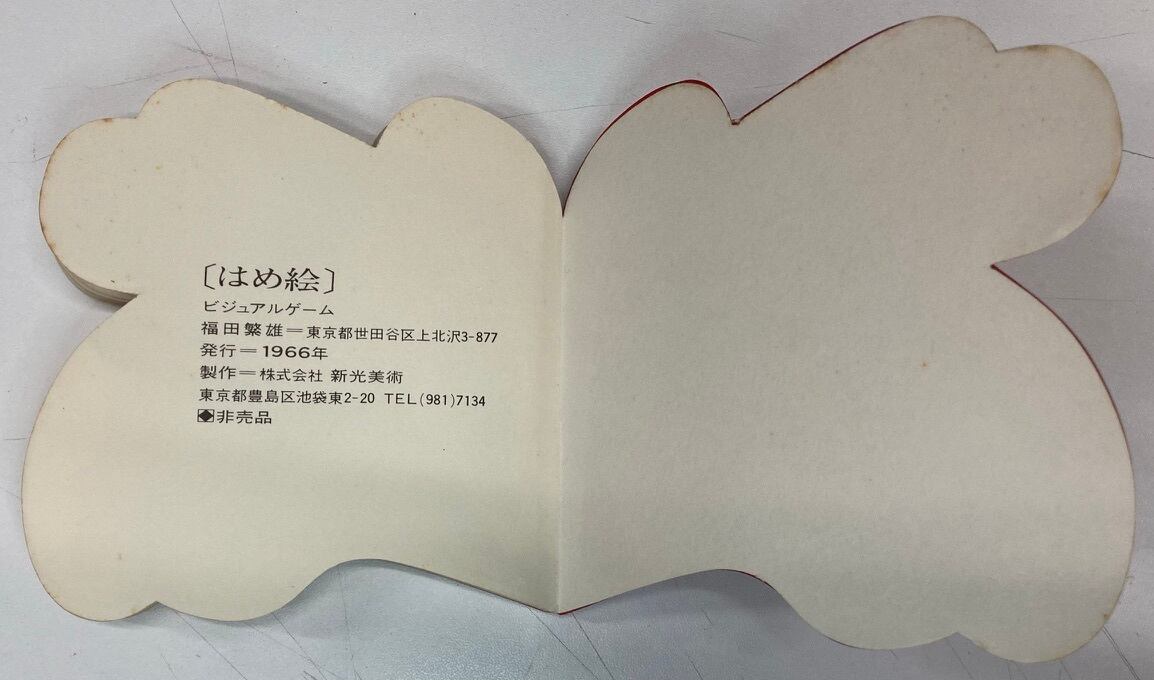 〔はめ絵〕
ビジュアルゲーム
福田繁雄＝東京都世田谷区上北沢3-877
発行＝1966年
製作＝株式会社 新光美術
東京都豊島区池袋東2-20 TEL(981)7134
◆非売品